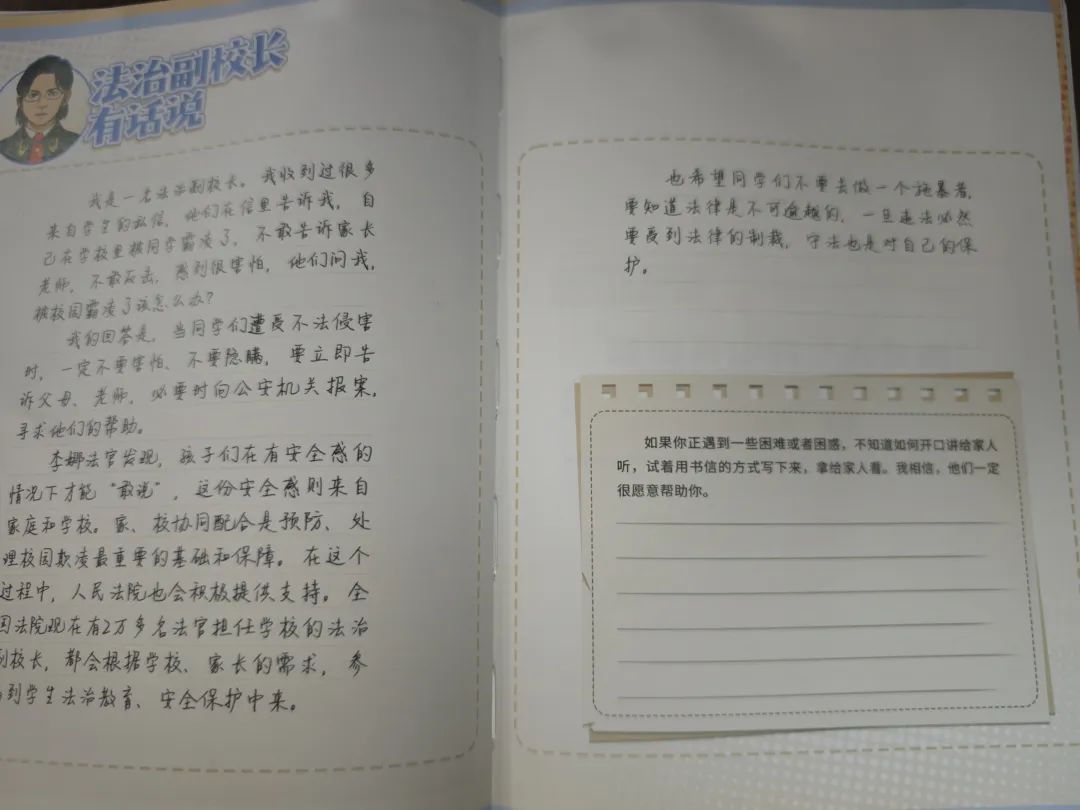 法治副校长
有话说
我是一名法治副校长。我收到过很多
来自学生的私信，他们在信里告诉我，自
己在学校里被同学霸凌了，不敢告诉家长
老师，不敢反击，感到很害怕，他们问我，
被校园霸凌了该怎么办？
我的回答是，当同学们遭受不法侵害
时，一定不要害怕、不要隐瞒，要立即告
诉父母、老师，必要时向公安机关报案，
寻求他们的帮助。
李娜法官发现，孩子们在有安全感的
情况下才能“敢说”，这份安全感则来自
家庭和学校。家、校协同配合是预防、处
理校园欺凌最重要的基础和保障。在这个
过程中，人民法院也会积极提供支持。全
国法院现在有2万多名法官担任学校的法治
副校长，都会根据学校、家长的需求，参
到学生法治教育、安全保护中来。
也希望同学们不要去做一个施暴者，
要知道法律是不可逾越的，一旦违法必然
要受到法律的制裁，守法也是对自己的保
护。
如果你正遇到一些困难或者困惑，不知道如何开口讲给家人
听，试着用书信的方式写下来，拿给家人看。我相信，他们一定
很愿意帮助你。